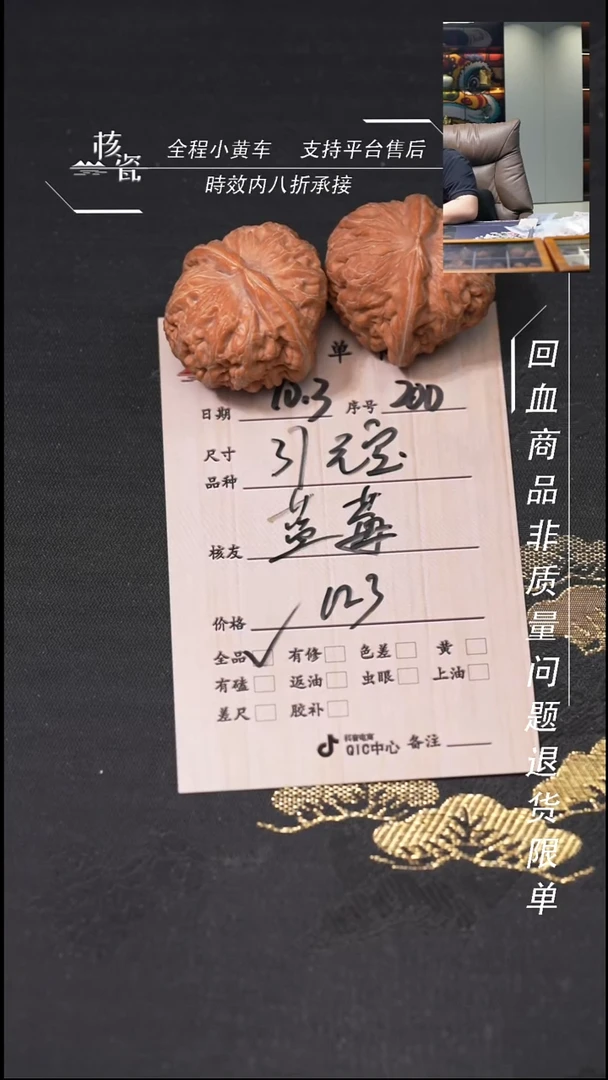 核瓷
全程小黄车 支持平台售后
時效内八折承接
单
日期 10.3 序号 200
尺寸
品种 元宝
核友 蓝莓
价格 123
全品 有修 色差 黄
有磕 返油 虫眼 上油
差尺 胶补
抖音电商
QIC中心 备注
回血商品非质量问题退货限单